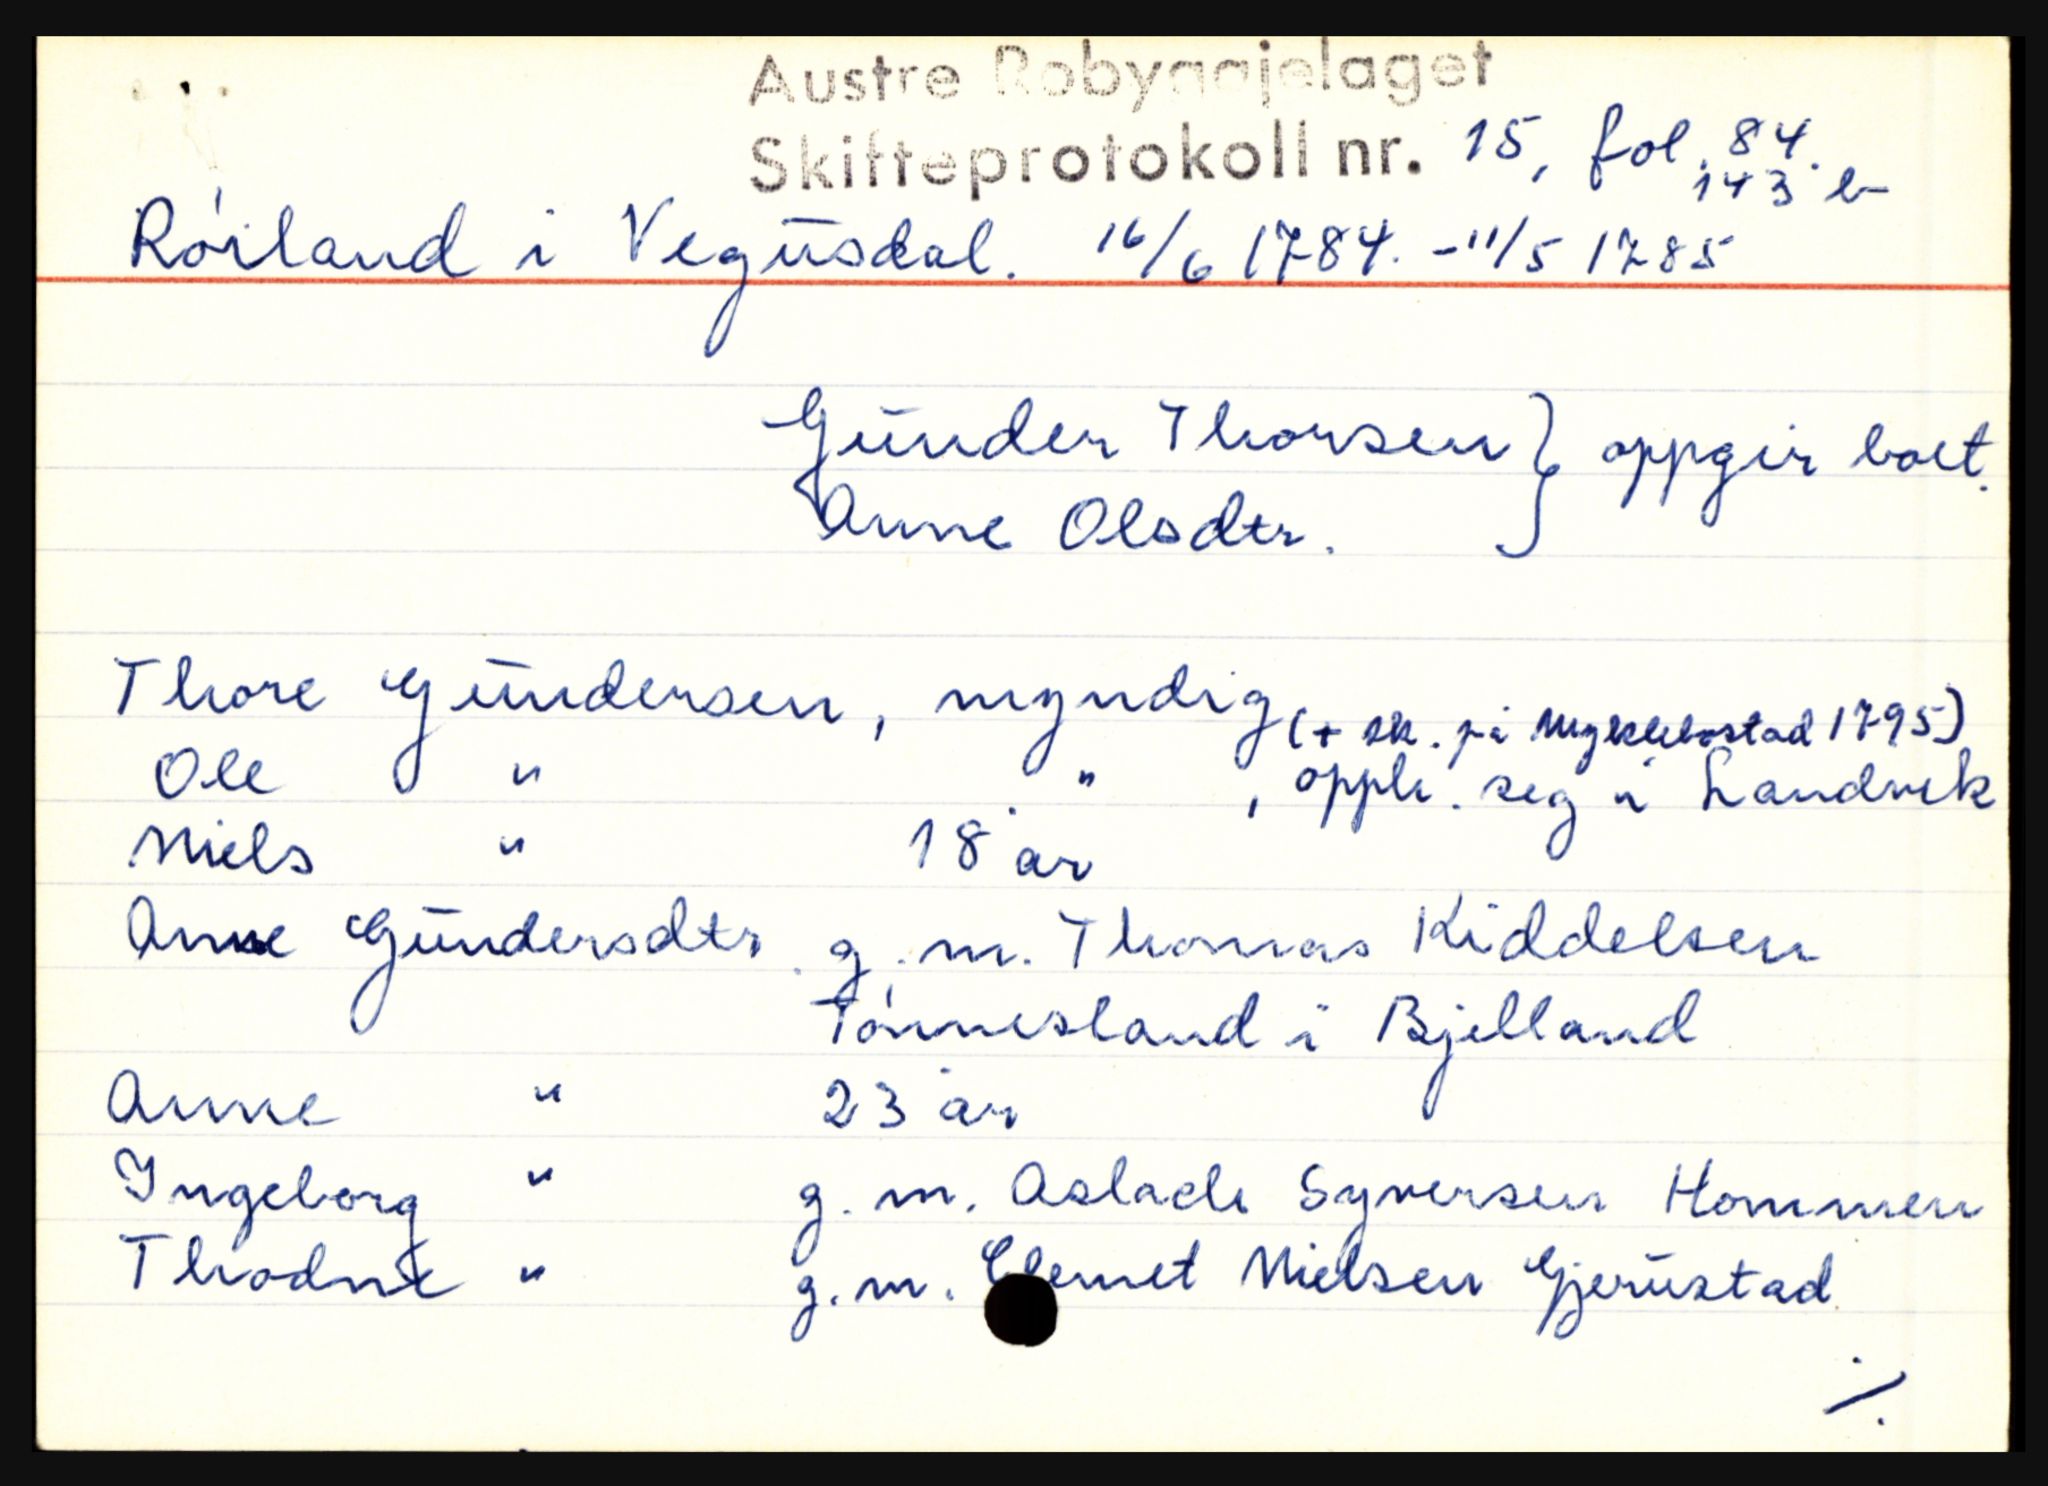 Austre Robyggjelaget
Skifteprotokoll nr. 15, fol. 84.
143 b
Róiland i Vegusdal. 16/6 1784. - 11/5 1785
Gunder Thorsen } oppgir boet.
Anne Olsdtr.
Thore Gundersen, myndig (+ sk. på Myklebostad 1795)
Ole " " , opph. seg i Landvik
Niels " 18 år
Anne Gundersdtr. g.m. Thomas Kiddelsen
Tónnesland i Bjelland
Anne " 23 år
Ingeborg " g.m. Aslach Syversen Hommen
Thodne " g.m. Clemet Nielsen Gjerustad
./.